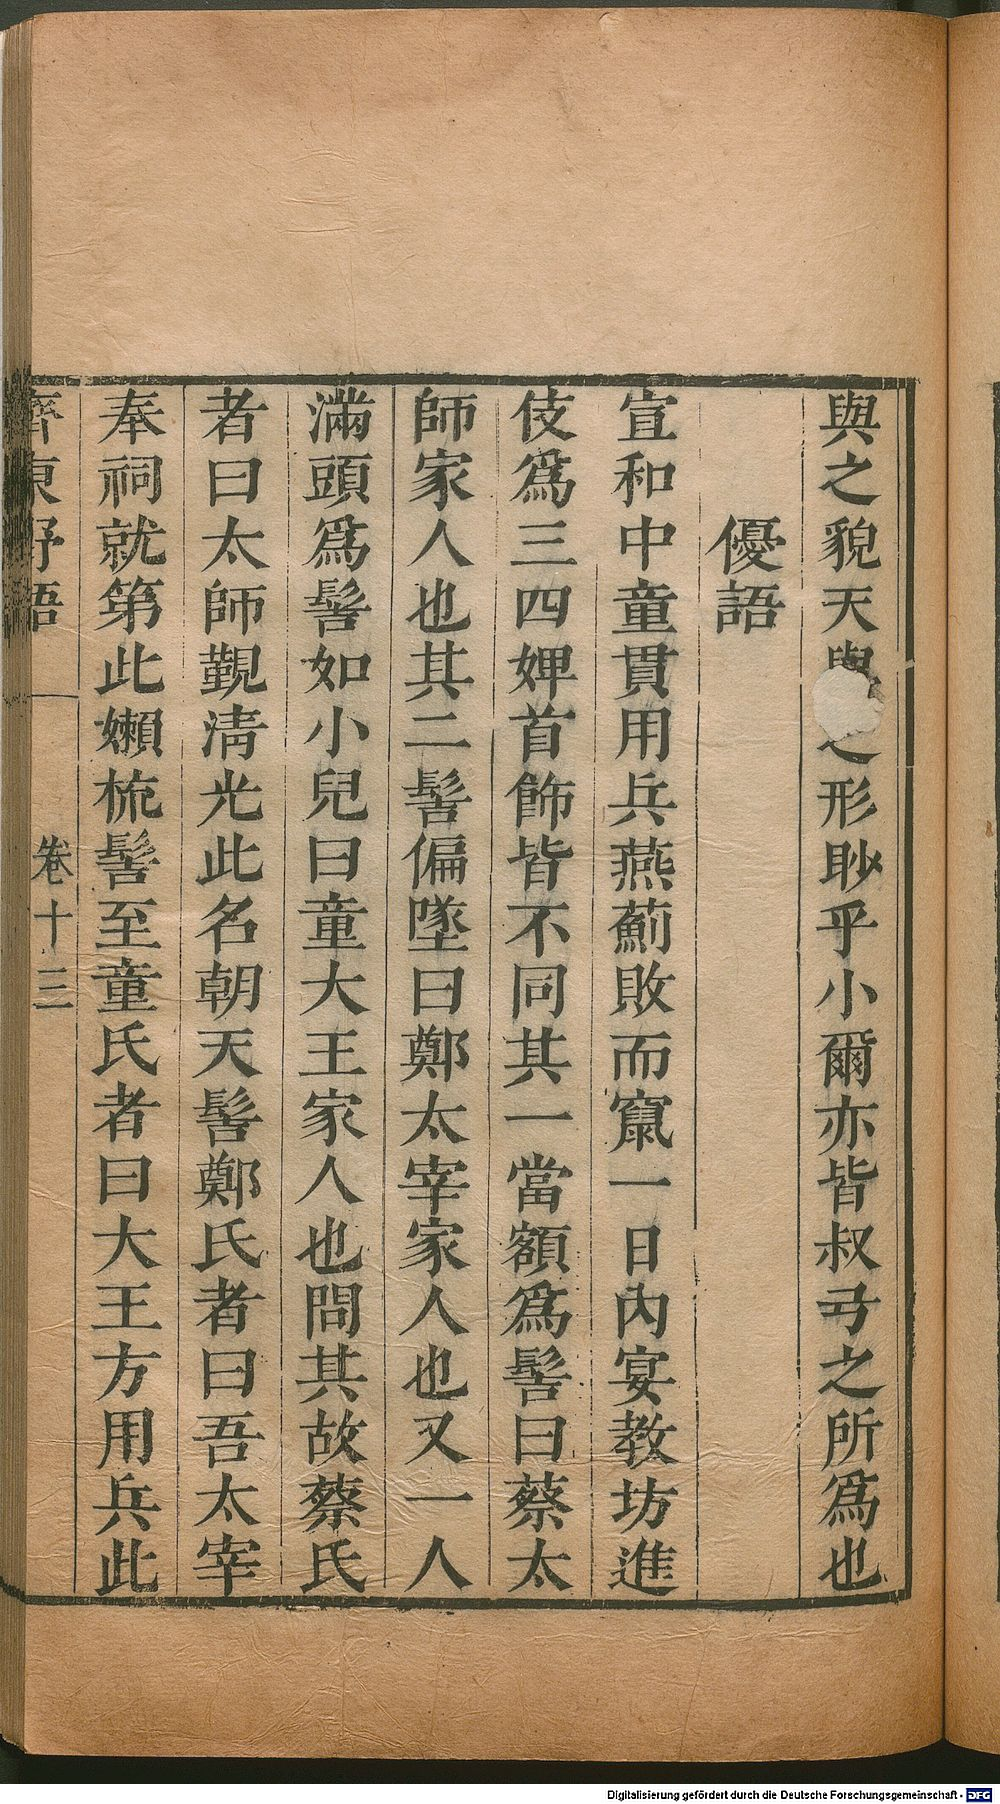 與之貌天與之形眇乎小爾亦皆叔弓之所爲也
優語
宣和中童貫用兵燕薊敗而竄一日內宴教坊進
伎爲三四婢首飾皆不同其一當額爲髻曰蔡太
師家人也其二髻偏墜曰鄭太宰家人也又一人
滿頭爲髻如小兒曰童大王家人也問其故蔡氏
者曰太師覲淸光此名朝天髻鄭氏者曰吾太宰
奉祠就第此嬾梳髻至童氏者曰大王方用兵此
齊東野語 卷十三
Digitalisierung gefördert durch die Deutsche Forschungsgemeinschaft - DFG